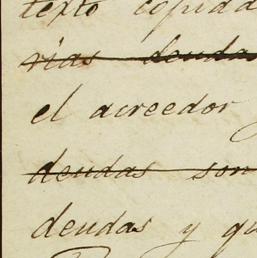 texto copiad
rias deuda
el acreedor
deudas son
deudas y qu